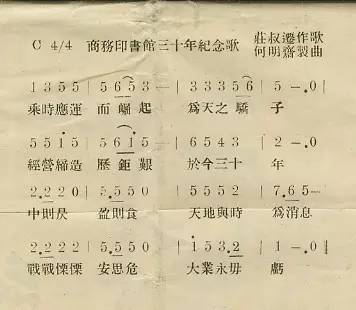 C 4/4 商務印書館三十年紀念歌 莊叔遷作歌
何明齋製曲
1 3 5 5 | 5 6 5 3 | 3 3 3 5 6 | 5 - . 0 |
乘時應運 而崛起 爲天之驕子
5 5 1 5 | 5 6 1 5 | 6 5 4 3 | 2 - . 0
經營締造 歷鉅艱 於今三十年
2 . 2 2 0 | 5 . 5 5 0 | 5 5 5 2 | 7 . 6 5 -
中則昃 盈則食 天地與時 爲消息
2 . 2 2 2 | 5 . 5 5 0 | 1 5 3 . 2 | 1 - . 0 |
戰戰慄慄 安思危 大業永毋虧